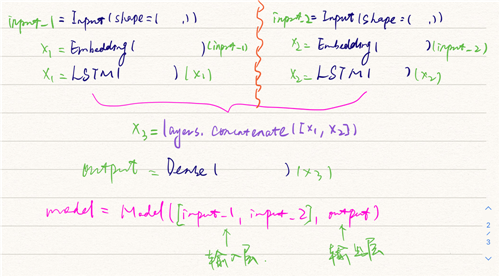 input_1 = Input(shape=( ,))
x₁ = Embedding( )(input_1)
x₁ = LSTM( )(x₁)
input_2 = Input(shape=( ,))
x₂ = Embedding( )(input_2)
x₂ = LSTM( )(x₂)
x₃ = layers.concatenate([x₁, x₂])
output = Dense( )(x₃)
model = Model([input_1, input_2], output)
输入层.
输出层
2/3